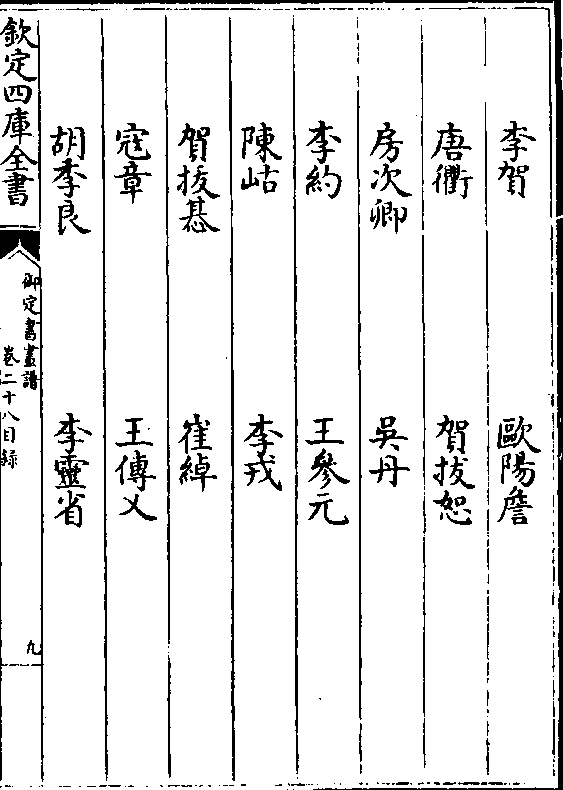 李賀　歐陽詹
唐衢　賀拔恕
房次卿　吳丹
李約　王參元
陳岵　李戎
賀拔惎　崔綽
寇章　王傳乂
胡季良　李靈省
欽定四庫全書
御定書畫譜
卷二十八目錄
九